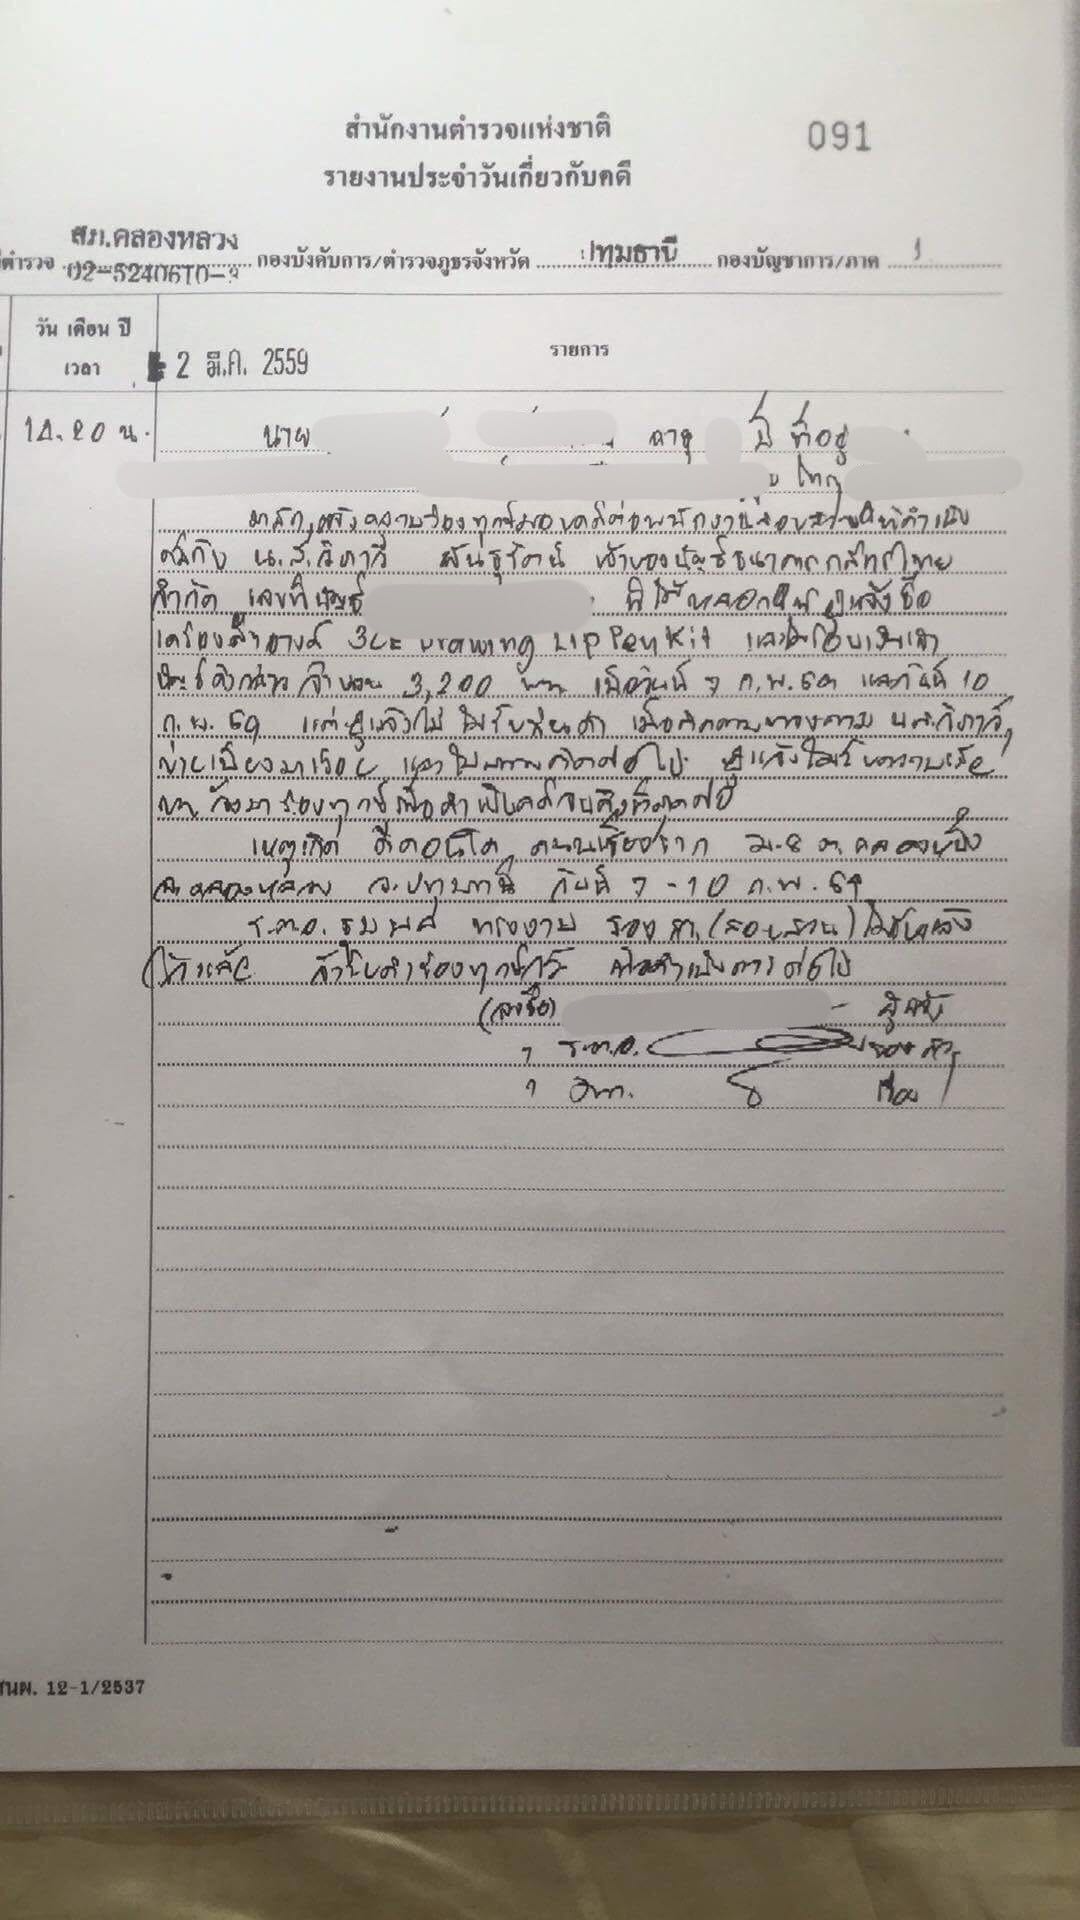 สำนักงานตำรวจแห่งชาติ
091
รายงานประจำวันเกี่ยวกับคดี
สภ.คลองหลวง
ตำรวจ 02-5240610- กองบังคับการ/ตำรวจภูธรจังหวัด ปทุมธานี กองบัญชาการ/ภาค 1
วัน เดือน ปี
เวลา
2 มี.ค. 2559
รายการ
14.20 น. นาย อายุ ปี ที่อยู่
ใหญ่
ร้องทุกข์มอบคดีต่อพนักงานสอบสวนให้ดำเนิน
คดีกับ น.ส.วิภาวี พันธุรัตน์ เจ้าของบัญชีธนาคารกสิกรไทย
จำกัด เลขที่บัญชี ที่ได้หลอกให้ผู้แจ้งซื้อ
เครื่องสำอางค์ 3CE Drawing Lip Pen Kit และให้โอนเงินเข้า
บัญชีดังกล่าว จำนวน 3,200 บาท เมื่อวันที่ 7 ก.พ.59 และวันที่ 10
ก.พ. 59 แต่ผู้แจ้งไม่ได้รับสินค้า เมื่อติดตามทวงถาม น.ส.วิภาวี
บ่ายเบี่ยงมาเรื่อย และไม่สามารถติดต่อได้ ผู้แจ้งได้รับความเสีย
หาย จึงมาร้องทุกข์เพื่อดำเนินคดีจนถึงที่สุด
เหตุเกิด ถนนเชียงราก ม.8 ต.คลองหนึ่ง
อ.คลองหลวง จ.ปทุมธานี วันที่ 7 - 10 ก.พ. 59
ร.ต.อ. ธมพส ทรงงาม รอง สว.(สอบสวน) ได้รับแจ้ง
ไว้แล้ว จึงรับคำร้องทุกข์ไว้ เพื่อดำเนินการต่อไป
(ลงชื่อ) ผู้แจ้ง
ร.ต.อ. รอง สว.